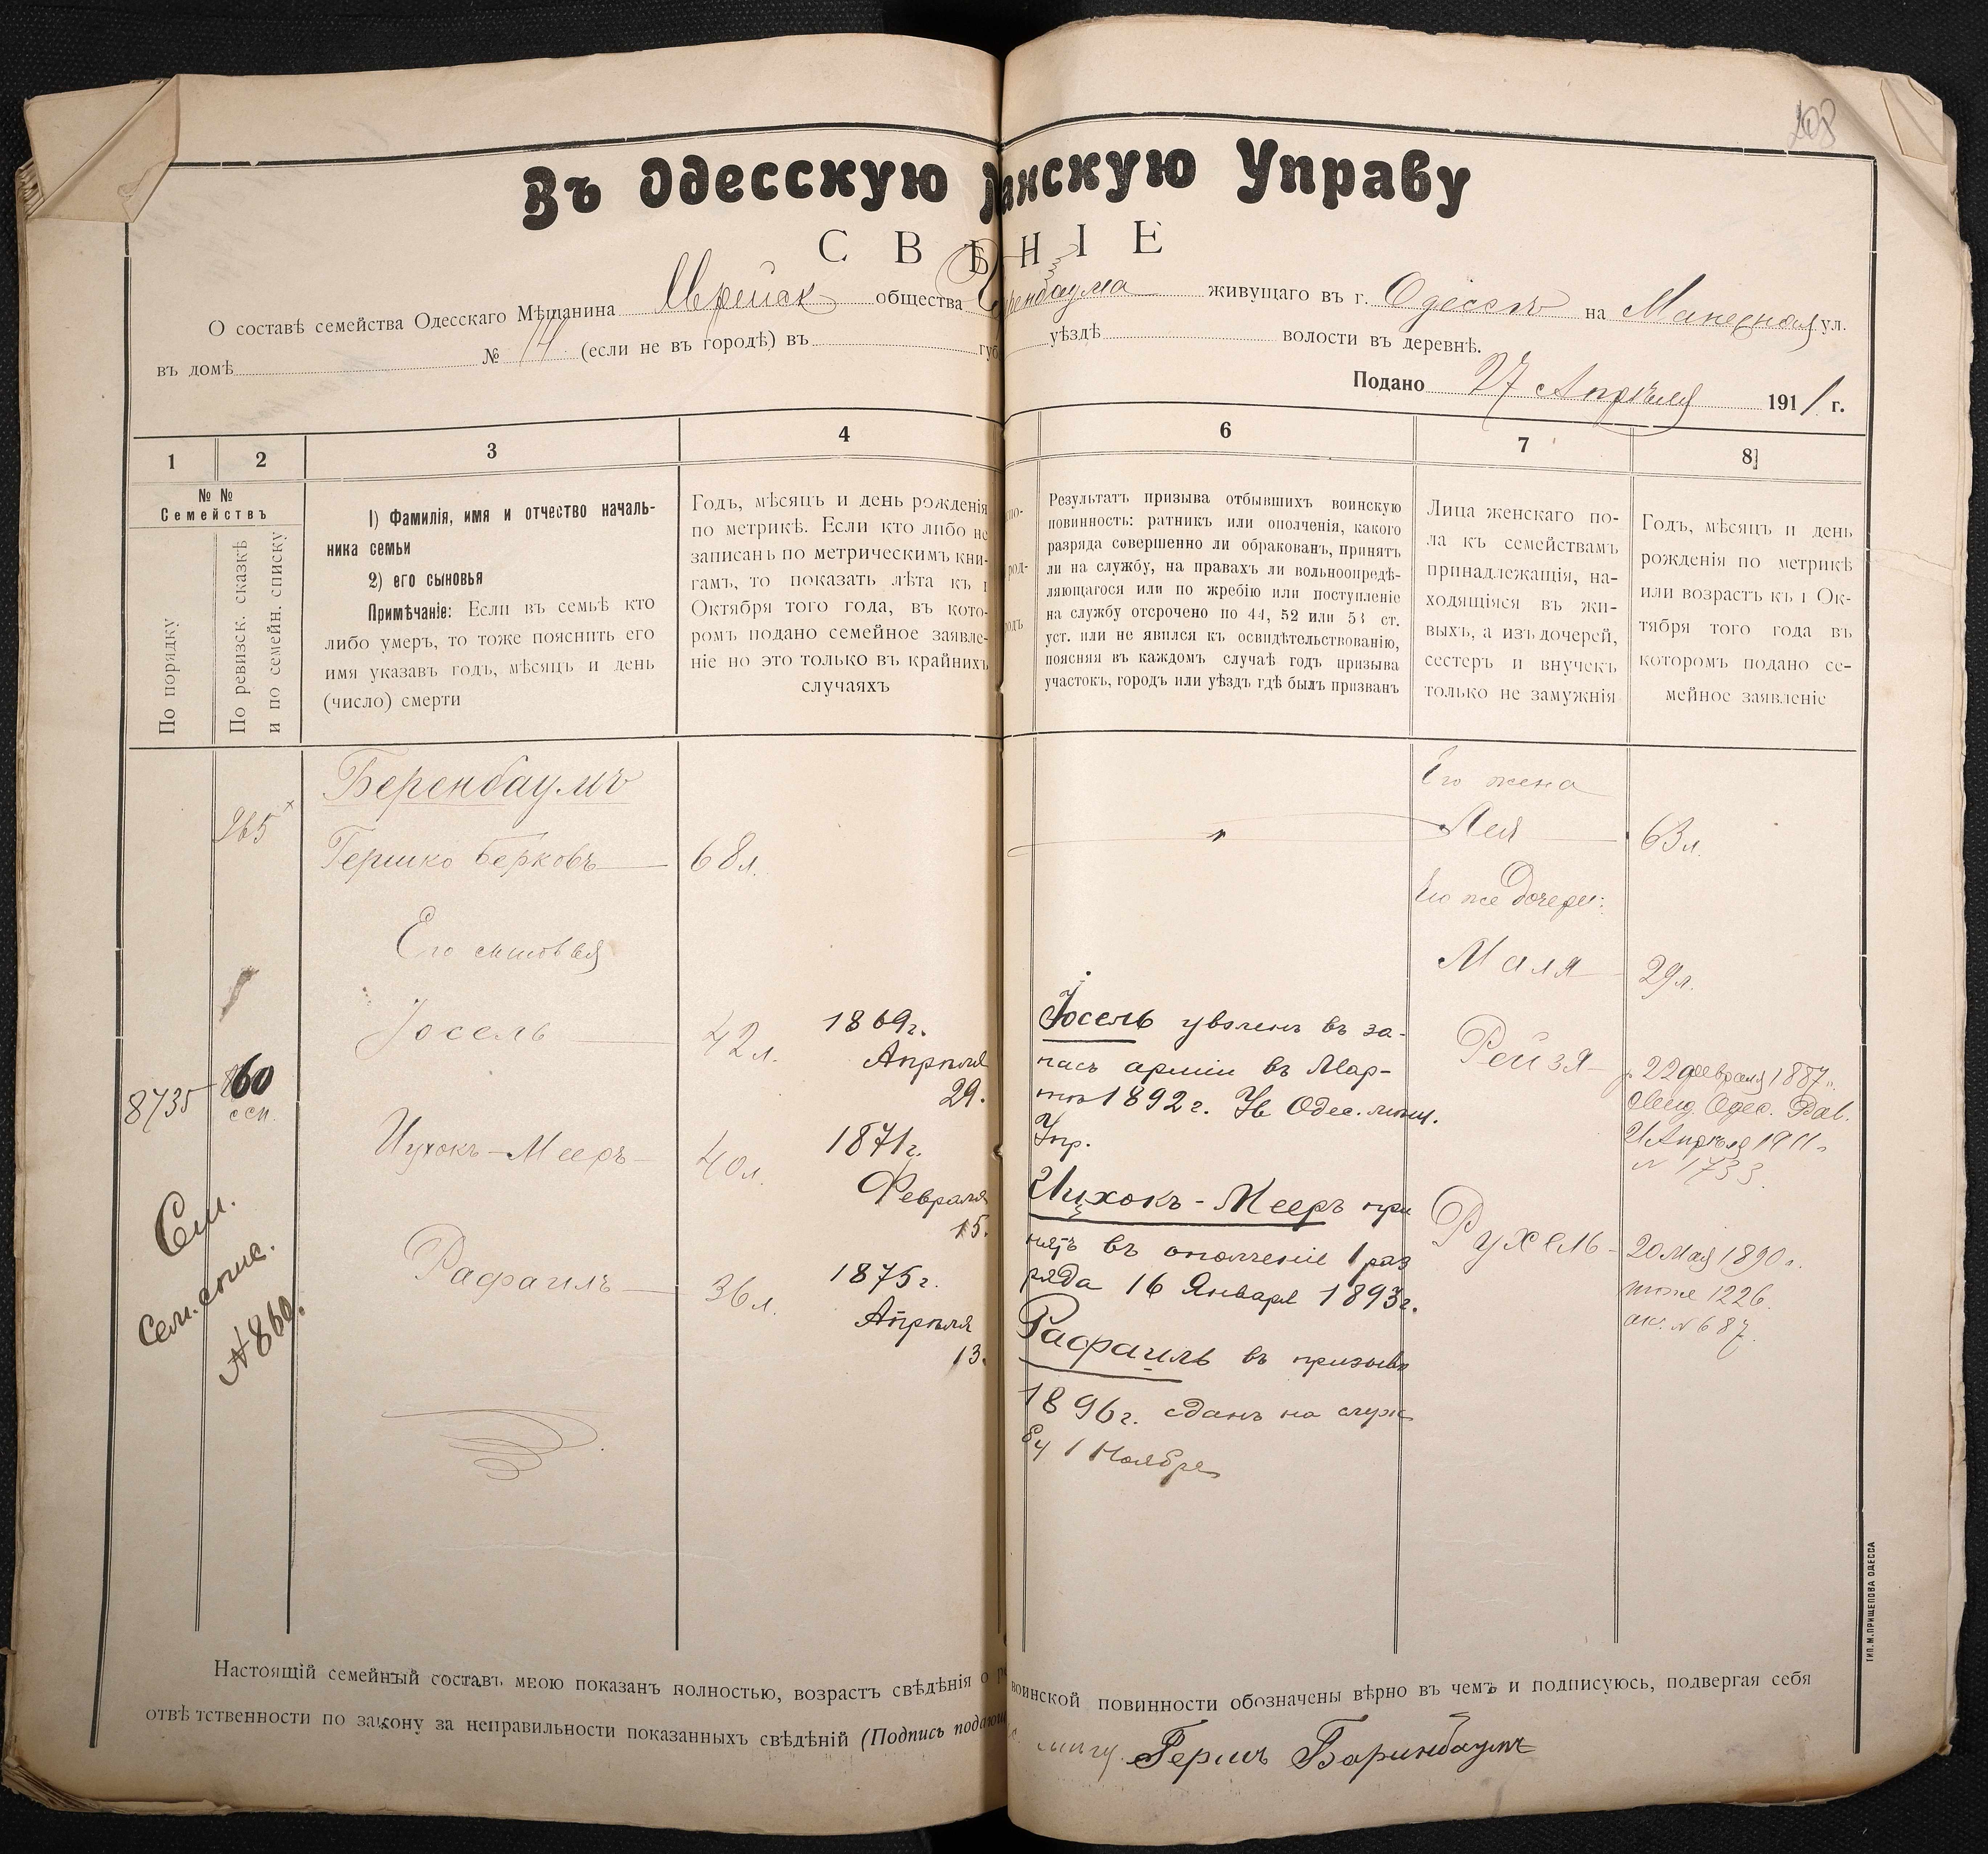 Въ Одесскую анскую Управу
С В Ѣ Н І Е
О составѣ семейства Одесскаго Мѣщанина Еврейск общества еренбаума живущаго въ г. Одессѣ на Манежная ул.
въ домѣ № 14 (если не въ городѣ) въ губ уѣздѣ волости въ деревнѣ.
Подано 27 Апрѣля 1911 г.
1 2 3 4 6 7 8
№ №
Семействъ
По порядку
По ревизск. сказкѣ
и по семейн. списку
1) Фамилія, имя и отчество началь-
ника семьи
2) его сыновья
Примѣчаніе: Если въ семьѣ кто
либо умеръ, то тоже пояснить его
имя указавъ годъ, мѣсяцъ и день
(число) смерти
Годъ, мѣсяцъ и день рожденія
по метрикѣ. Если кто либо не
записанъ по метрическимъ кни-
гамъ, то показать лѣта къ 1
Октября того года, въ кото-
ромъ подано семейное заявле-
ніе но это только въ крайнихъ
случаяхъ
Результатъ призыва отбывшихъ воинскую
повинность: ратникъ или ополченія, какого
разряда совершенно ли обракованъ, принятъ
ли на службу, на правахъ ли вольноопредѣ-
ляющагося или по жребію или поступленіе
на службу отсрочено по 44, 52 или 53 ст.
уст. или не явился къ освидѣтельствованію,
поясняя въ каждомъ случаѣ годъ призыва
участокъ, городъ или уѣздъ гдѣ былъ призванъ
Лица женскаго по-
ла къ семействамъ
принадлежащія, на-
ходящіяся въ жи-
выхъ, а изъ дочерей,
сестеръ и внучекъ
только не замужнія
Годъ, мѣсяцъ и день
рожденія по метрикѣ
или возрастъ къ 1 Ок-
тября того года въ
которомъ подано се-
мейное заявленіе
8735
860
ссп.
См.
Сем. спис.
№ 860.
Беренбаумъ
Гершко Берковъ
68 л.
Его сыновья
Іосель
42 л.
1869 г.
Апрѣля
29.
Ицхокъ-Мееръ
40 л.
1871 г.
Февраля
15.
Рафаилъ
36 л.
1875 г.
Апрѣля
13.
Іосель уволенъ въ за-
пасъ арміи въ Мар-
тѣ 1892 г. Ув Одес. мѣщ.
Упр.
Ицхокъ-Мееръ при
нятъ въ ополченіе 1 раз
ряда 16 Января 1893 г.
Рафаилъ въ призывѣ
1896 г. сданъ на служ
бу 1 Ноября
Его жена
Лея
63 л.
Его же дочери:
Маля
29 л.
Рейзя
р. 22 февраля 1887 г.
свид. Одес. Рав.
21 Апрѣля 1911 г.
№ 1733
Рухель
20 Мая 1890 г.
тоже 1226.
ак. № 687.
Настоящій семейный составъ мною показанъ полностью, возрастъ свѣдѣнія о воинской повинности обозначены вѣрно въ чемъ и подписуюсь, подвергая себя
отвѣтственности по закону за неправильности показанныхъ свѣдѣній (Подпись подающ
Гершъ Баринбаумъ
ТИП. М. ПРИЩЕПОВА ОДЕССА